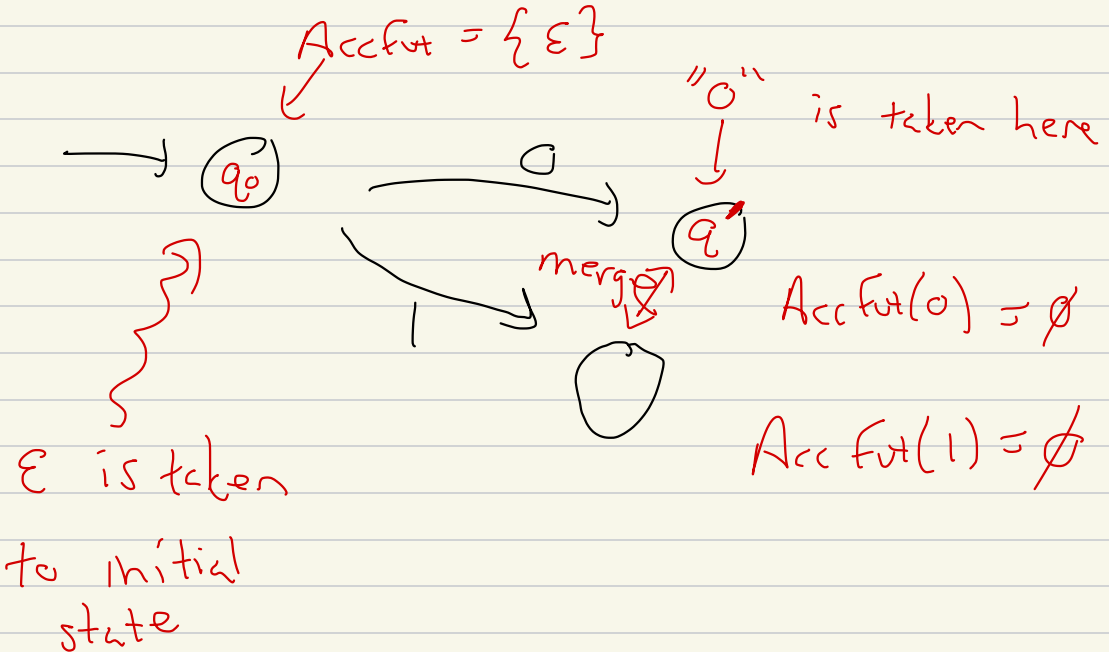 AccFut = {ε}
"0" is taken here
q₀
0
q'
merge
AccFut(0) = ∅
1
AccFut(1) = ∅
ε is taken
to initial
state